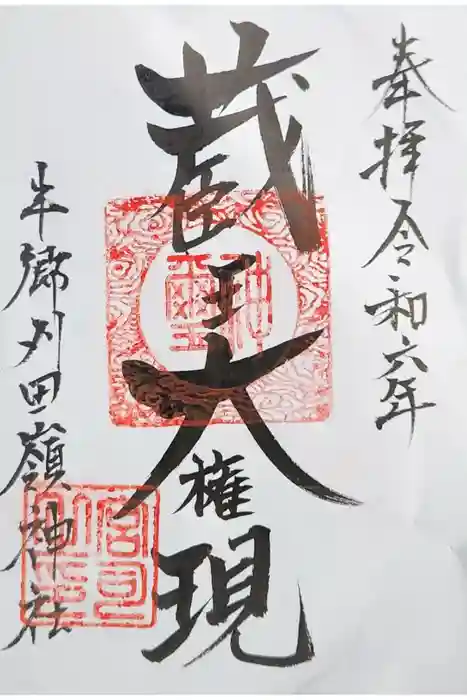 奉拝 令和六年
蔵王大権現
刈田嶺神社